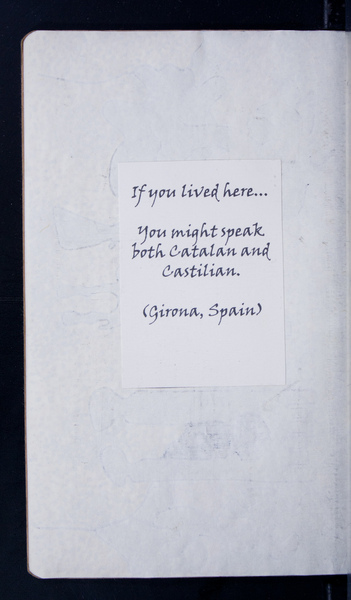 If you lived here...
You might speak
both Catalan and
Castilian.
(Girona, Spain)